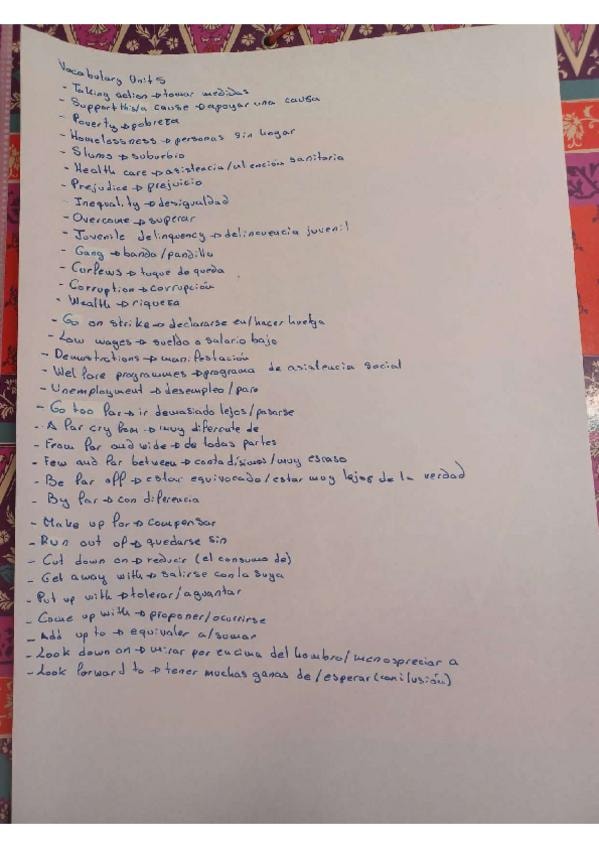 Vocabulary Unit 5
- Taking action → tomar medidas
- Support this/a cause → apoyar una causa
- Poverty → pobreza
- Homelessness → personas sin hogar
- Slums → suburbio
- Health care → asistencia/atención sanitaria
- Prejudice → prejuicio
- Inequality → desigualdad
- Overcome → superar
- Juvenile delinquency → delincuencia juvenil
- Gang → banda/pandilla
- Curfews → toque de queda
- Corruption → corrupción
- Wealth → riqueza
- Go on strike → declararse en/hacer huelga
- Low wages → sueldo o salario bajo
- Demostrations → manifestación
- Welfare programmes → programa de asistencia social
- Unemployment → desempleo/paro
- Go too far → ir demasiado lejos/pasarse
- A far cry from → muy diferente de
- From far and wide → de todas partes
- Few and far between → contadísimos/muy escaso
- Be far off → estar equivocado/estar muy lejos de la verdad
- By far → con diferencia
- Make up for → compensar
- Run out of → quedarse sin
- Cut down on → reducir (el consumo de)
- Get away with → salirse con la suya
- Put up with → tolerar/aguantar
- Come up with → proponer/ocurrirse
- Add up to → equivaler a/sumar
- Look down on → mirar por encima del hombro/menospreciar a
- Look forward to → tener muchas ganas de/esperar (con ilusión)